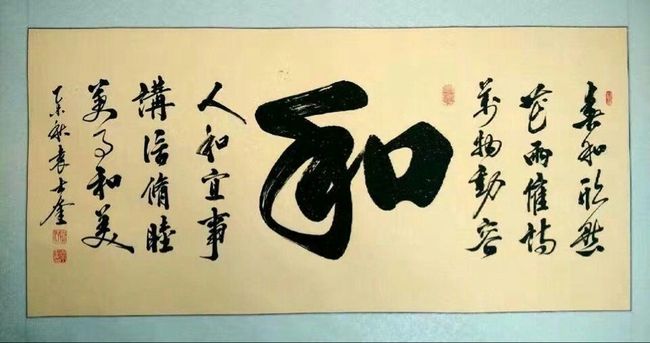 春和欣然
花雨催詩
萬物動容
和
人和宜事
講信脩睦
美和美
乙未秋袁士奎